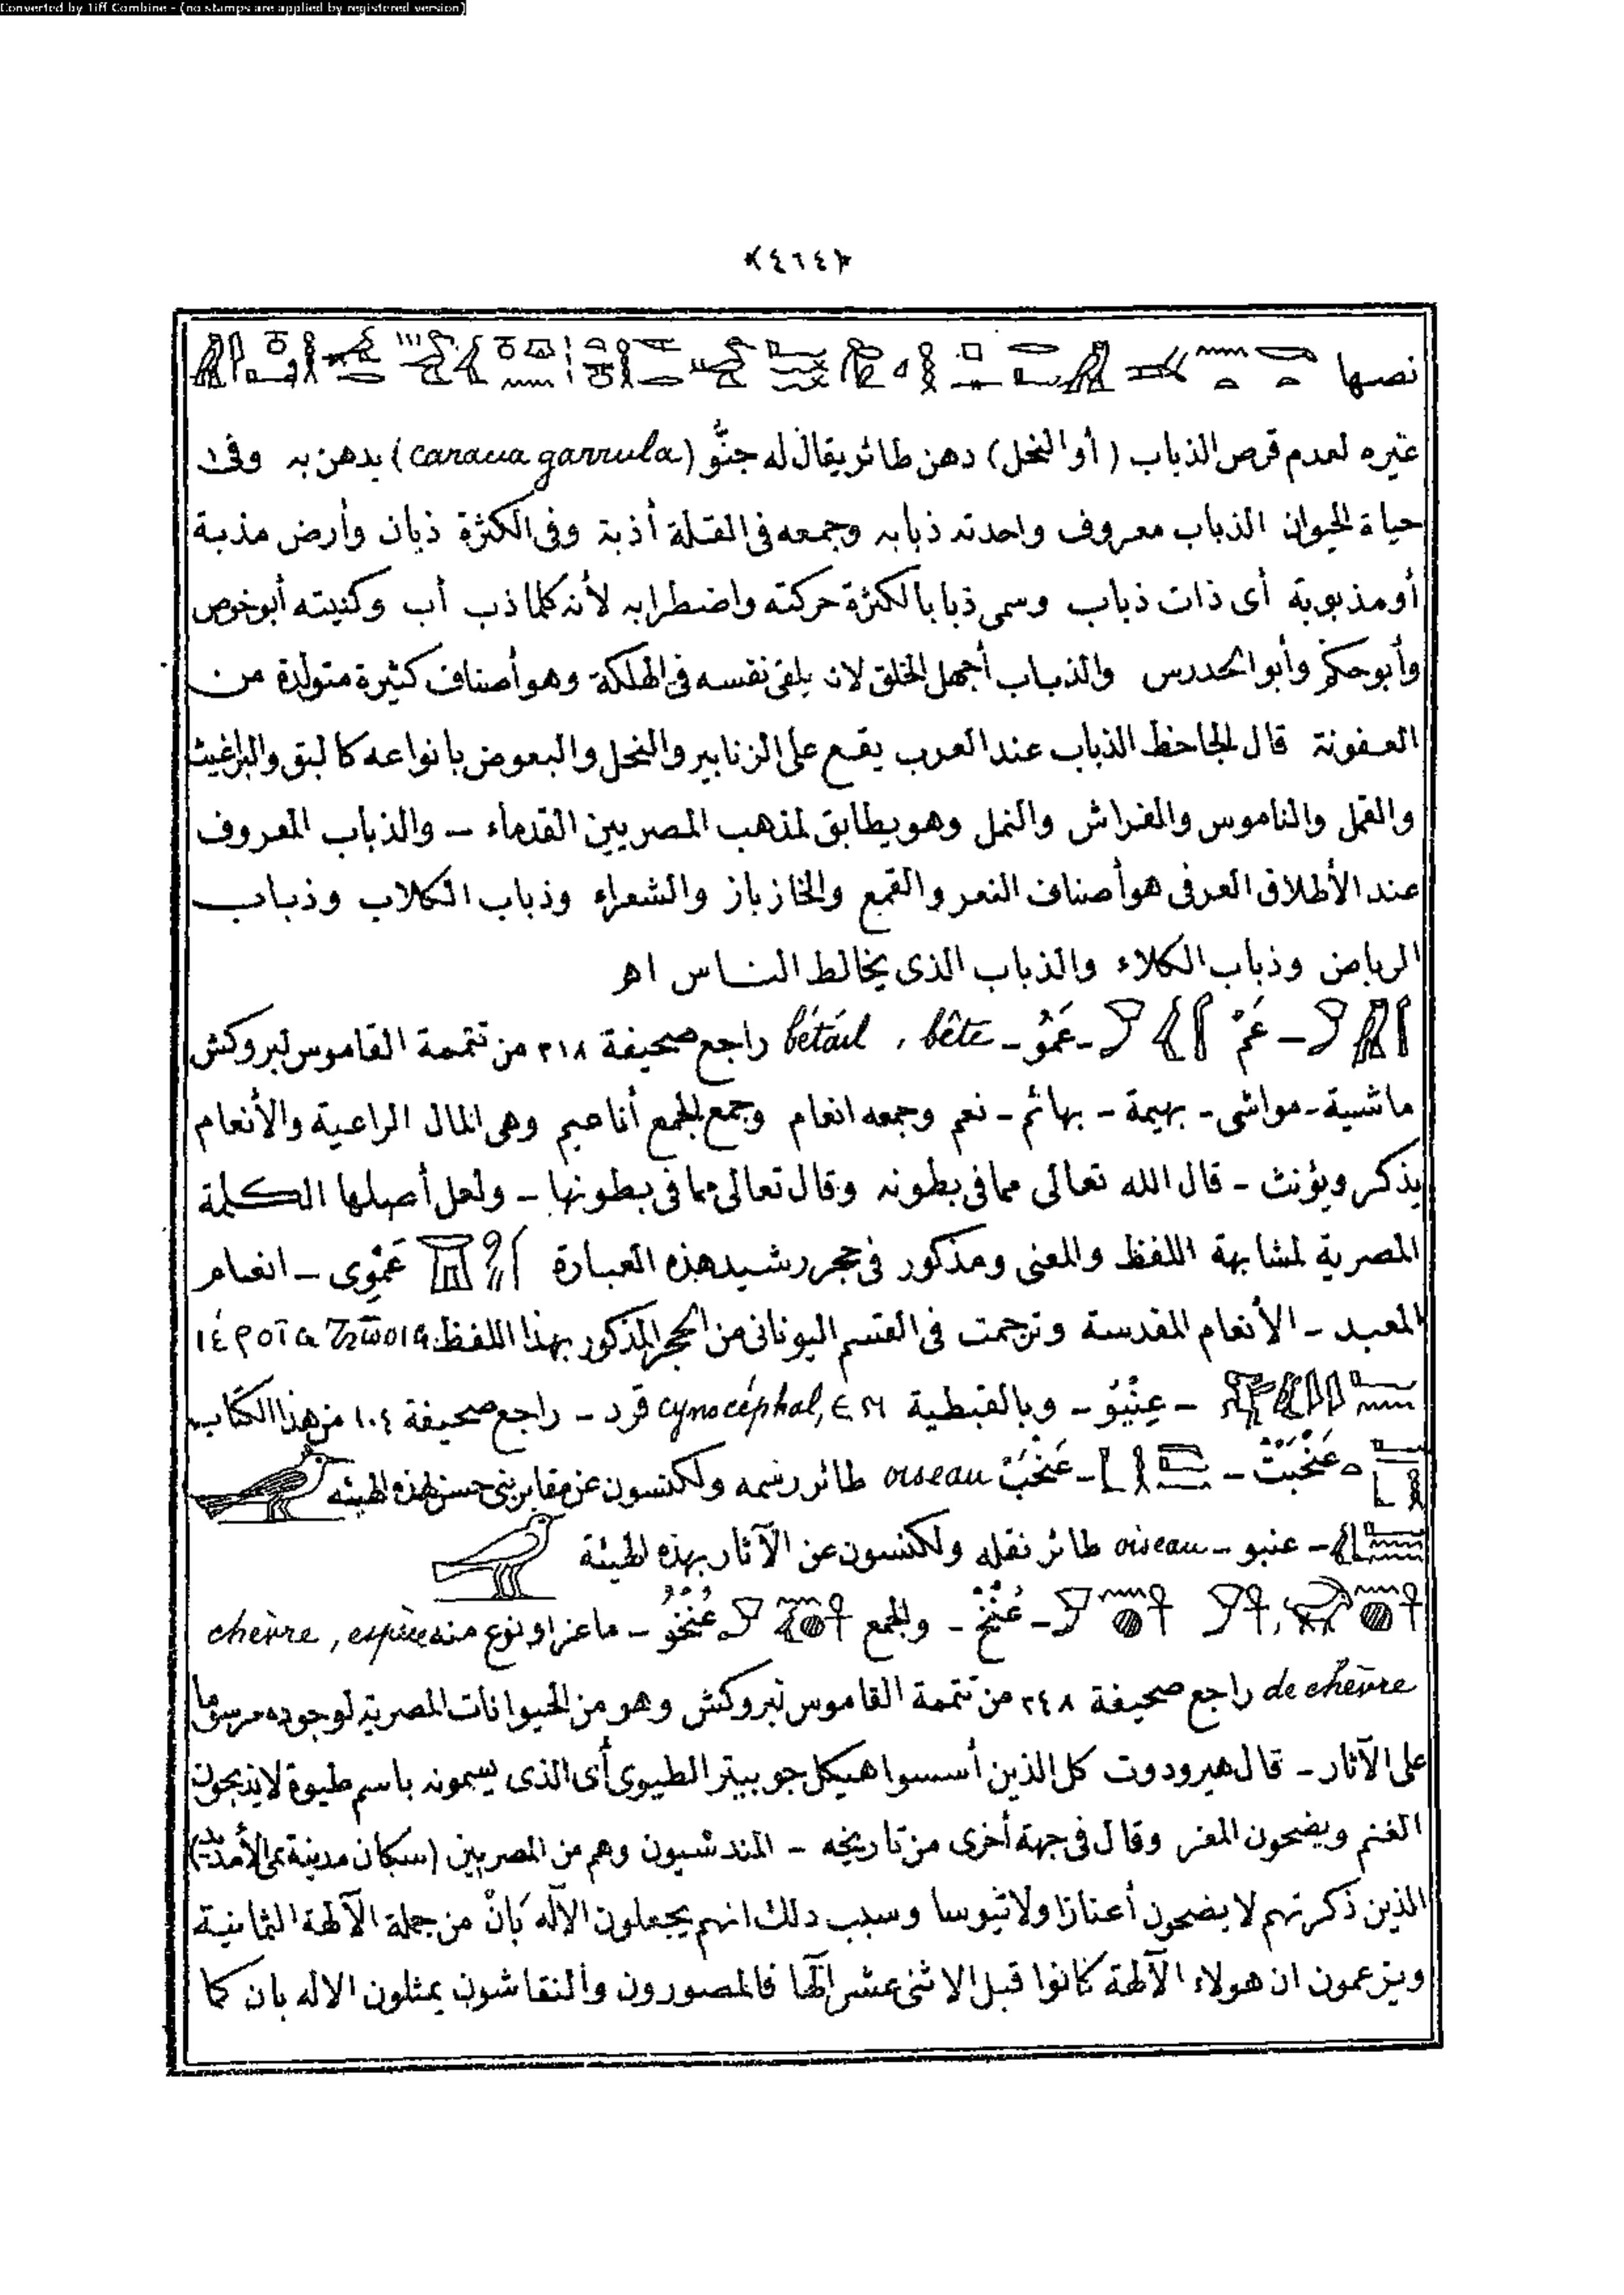 Converted by Tiff Combine - (no stamps are applied by registered version)
﴿٤٦٤﴾
نصها
غيره لعدم قرص الذباب (أو النحل) دهن طائر يقال له جنُّو (caracia garrula) يدهن به وفى
حياة الحيوان الذباب معروف واحدته ذبابه وجمعه فى القلة أذبة وفى الكثرة ذبان وأرض مذبة
أو مذبوبة أى ذات ذباب وسمى ذبابا لكثرة حركته واضطرابه لأنه كلما ذب أب وكنيته أبو خوص
وأبو حكم وأبو الحدرس والذباب أجهل الخلق لانه يلقى نفسه فى الهلكة وهو أصناف كثيرة متولدة من
العفونة قال الجاحظ الذباب عند العرب يقع على الزنابير والنحل والبعوض بانواعه كالبق والبراغيث
والقمل والناموس والفراش والنمل وهو يطابق لمذهب المصريين القدماء – والذباب المعروف
عند الأطلاق العرفى هو أصناف النعر والقمع والخازباز والشعراء وذباب الكلاب وذباب
الرياض وذباب الكلاء والذباب الذى يخالط الناس اهـ
– عَمْ – عَمُو – bétail , bête راجع صحيفة ٣١٨ من تتمة القاموس لبروكش
ماشية – مواشى – بهيمة – بهائم – نعم وجمعه انعام وجمع الجمع أناعيم وهى المال الراعية والأنعام
يذكر ويؤنث – قال الله تعالى مما فى بطونه وقال تعالى مما فى بطونها – ولعل أصلها الكلمة
المصرية لمشابهة اللفظ والمعنى ومذكور فى حجر رشيد هذه العبارة عَمْوِى – انعام
المعبد – الأنعام المقدسة وترجمت فى القسم اليونانى من الحجر المذكور بهذا اللفظ
– عِنْيُو – وبالقبطية ⲉⲛ cynocéphal, قرد – راجع صحيفة ١٠٤ من هذا الكتاب
عَنْخَبَتْ – – عَنْخَبْ oiseau طائر رسمه ولكنسون عن مقابر بنى حسن بهذه الهيئه
– عنبو – oiseau طائر نقله ولكنسون عن الآثار بهذه الهيئة
– عُنْخْ – والجمع عُنْخُو – ماعز او نوع منه chèvre, espèce
de chèvre راجع صحيفة ٢٤٨ من تتمة القاموس لبروكش وهو من الحيوانات المصرية لوجوده مرسوما
على الآثار – قال هيرودوت كل الذين أسسوا هيكل جوبيتر الطيوى أى الذى يسمونه باسم طيوة لا يذبحون
الغنم ويضحون المعز وقال فى جهة أخرى من تاريخه – المندشيون وهم من المصريين (سكان مدينة تمى الأمديد)
الذين ذكرتهم لا يضحون أعنازا ولا تيوسا وسبب ذلك انهم يجعلون الآله بَانْ من جملة الآلهة الثمانية
ويزعمون ان هولاء الآلهة كانوا قبل الاثنى عشر الٓها فالمصورون والنقاشون يمثلون الاله بان كما